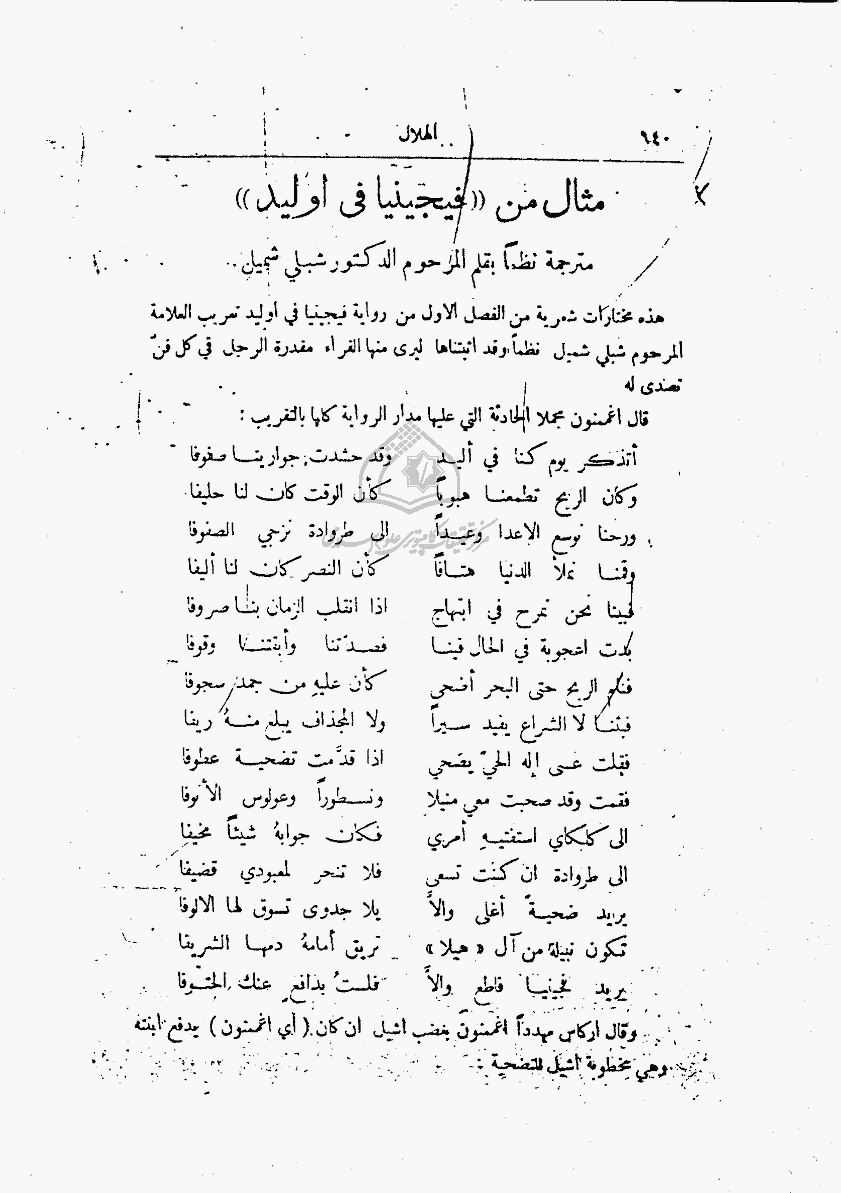 ٦٤٠
الهلال
مثال من ((فيجينيا فى أوليد))
مترجمة نظماً بقلم المرحوم الدكتور شبلي شميل
هذه مختارات شعرية من الفصل الاول من رواية فيجينيا في أوليد تعريب العلامة
المرحوم شبلي شميل نظماً وقد اثبتناها ليرى منها القراء مقدرة الرجل في كل فنّ
تصدى له
قال اغممنون مجملا الحادثة التي عليها مدار الرواية كلها بالتقريب :
أتذكر يوم كنا في أليد وقد حشدت جوارينا صفوفا
وكان الريح تطمعنا هبوباً كأن الوقت كان لنا حليفا
ورحنا نوسع الاعدا وعيداً الى طروادة نزجي الصفوفا
وقمنا نملأ الدنيا هتافاً كأن النصر كان لنا أليفا
فبينا نحن نمرح في ابتهاج اذا انقلب الزمان بنا صروفا
بدت اعجوبة في الحال فينا فصدّتنا وأبقتنا وقوفا
فنام الريح حتى البحر أضحى كأن عليه من جمد سجوفا
فبتنا لا الشراع يفيد سيراً ولا المجذاف يبلغ منهُ ريفا
فقلت عسى إله الحيّ يضحي اذا قدَّمت تضحية عطوفا
فقمت وقد صحبت معي منيلا ونسطوراً وعولوس الأنوفا
الى كلكاي استفتيهِ أمري فكان جوابهُ شيئاً مخيفا
الى طروادة ان كنت تسعى فلا تنحر لمعبودي قضيفا
يريد ضحيةً أغلى والاَّ بلا جدوى تسوق لها الالوفا
تكون نبيلة من آل « هيلا » تريق أمامهُ دمها الشريفا
يريد فجينيا قاطع والاَّ فلستُ بدافع عنك الحتوفا
وقال اركاس مهدداً اغممنون بغضب اشيل ان كان ( أي اغممنون ) يدفع ابنته
وهي مخطوبة اشيل للتضحية :